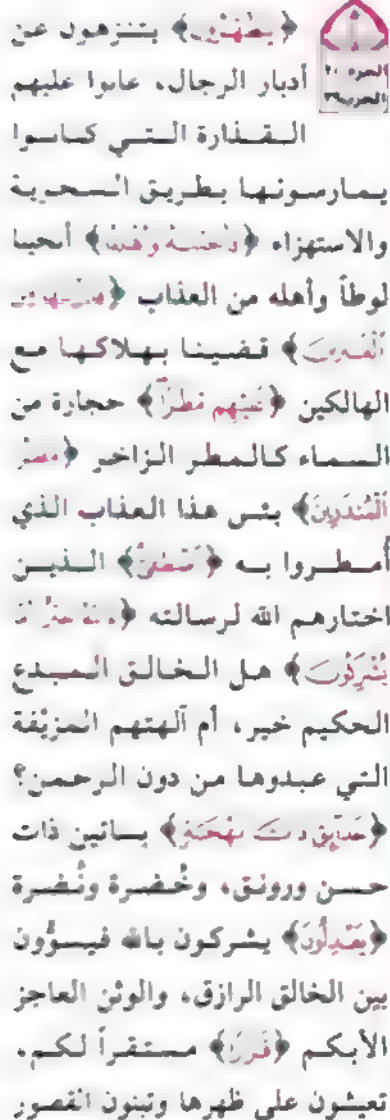 ﴿يتطهرون﴾ يتنزهون عن
الجزء ٢٠
أدبار الرجال، عابوا عليهم
الحزب ٣٩
القذارة التي كانوا
يمارسونها بطريق السخرية
والاستهزاء ﴿فأنجيناه وأهله﴾ أنجينا
لوطاً وأهله من العذاب ﴿قدرناها من
الغابرين﴾ قضينا بهلاكها مع
الهالكين ﴿عليهم مطراً﴾ حجارة من
السماء كالمطر الزاخر ﴿مطر
المنذرين﴾ بئس هذا العذاب الذي
أمطروا به ﴿اصطفى﴾ الذين
اختارهم الله لرسالته ﴿ءالله خير أما
يشركون﴾ هل الخالق المبدع
الحكيم خير، أم آلهتهم المزيّفة
التي عبدوها من دون الرحمن؟
﴿حدائق ذات بهجة﴾ بساتين ذات
حسن ورونق، وخُضرة ونُضرة
﴿يعدلون﴾ يشركون بالله فيسوُّون
بين الخالق الرازق، والوثن العاجز
الأبكم ﴿قراراً﴾ مستقراً لكم،
تعيشون على ظهرها وتبنون القصور